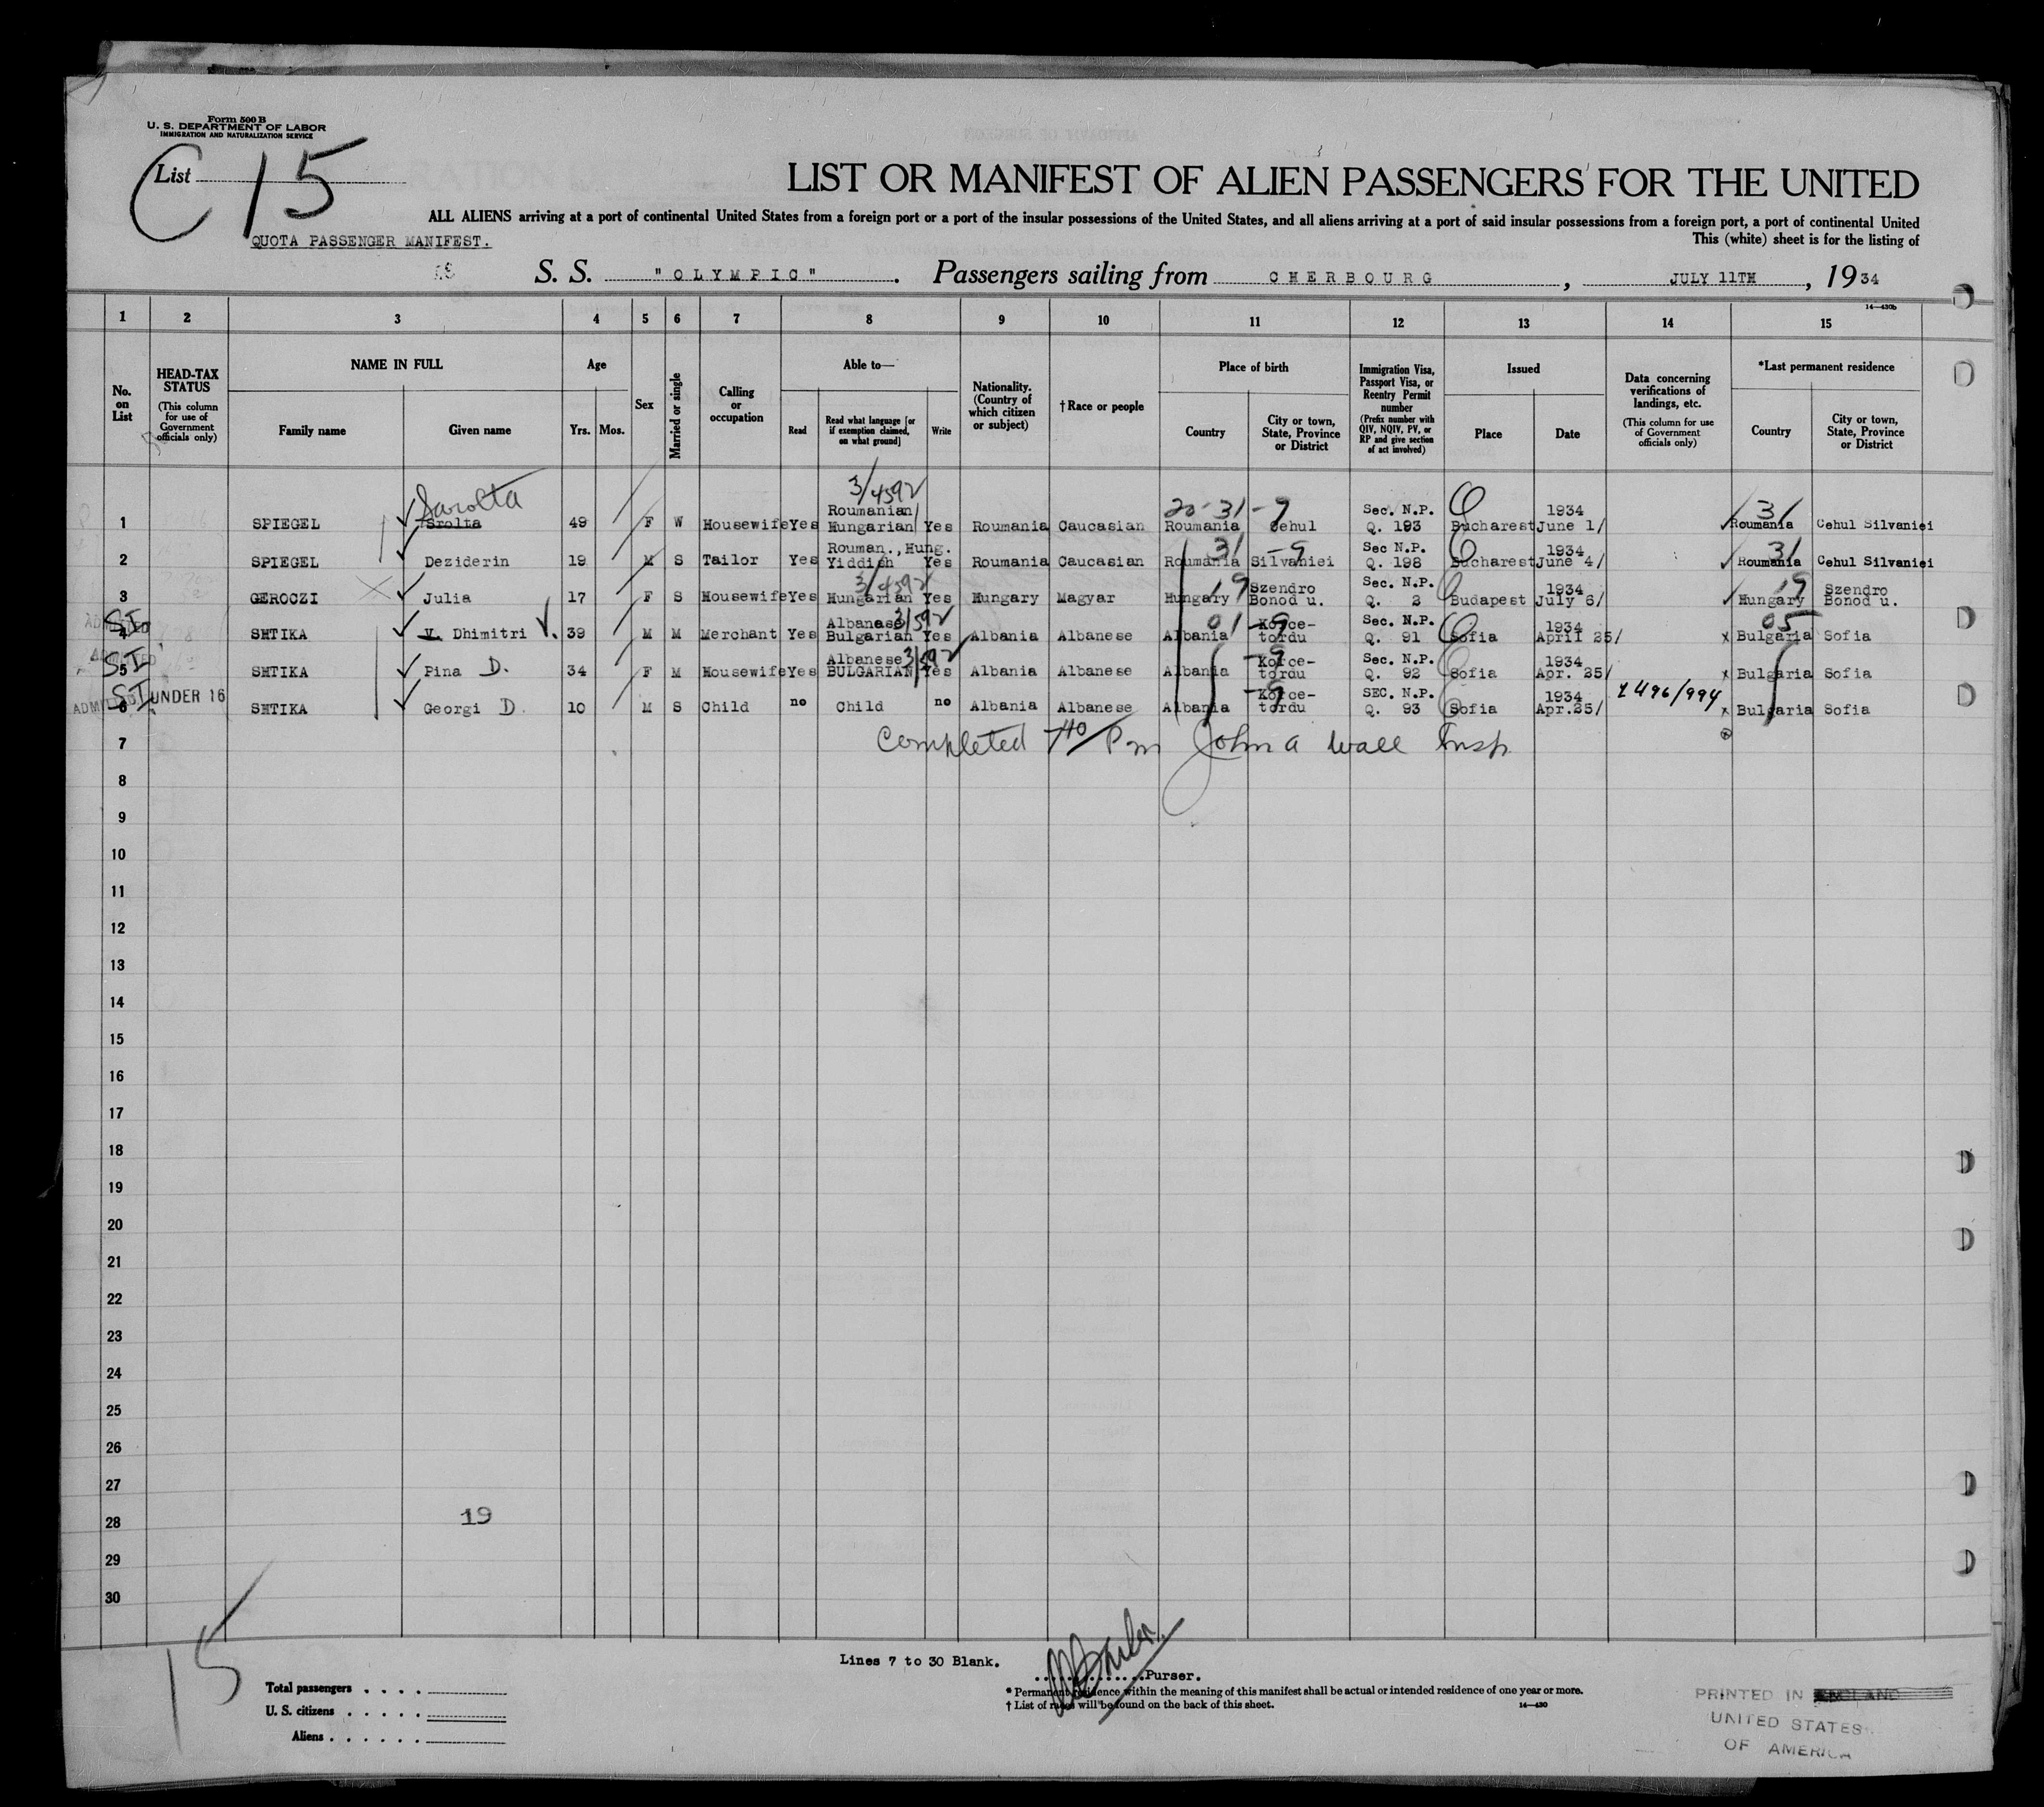 Form 500 B
U. S. DEPARTMENT OF LABOR
IMMIGRATION AND NATURALIZATION SERVICE
List C 15
LIST OR MANIFEST OF ALIEN PASSENGERS FOR THE UNITED
ALL ALIENS arriving at a port of continental United States from a foreign port or a port of the insular possessions of the United States, and all aliens arriving at a port of said insular possessions from a foreign port, a port of continental United
This (white) sheet is for the listing of
QUOTA PASSENGER MANIFEST.
S. S. "OLYMPIC". Passengers sailing from CHERBOURG, JULY 11TH, 1934
14-430b
1 2 3 4 5 6 7 8 9 10 11 12 13 14 15
No. on List
HEAD-TAX STATUS (This column for use of Government officials only)
NAME IN FULL
Family name
Given name
Age
Yrs. Mos.
Sex
Married or single
Calling or occupation
Able to—
Read
Read what language [or if exemption claimed, on what ground]
Write
Nationality. (Country of which citizen or subject)
†Race or people
Place of birth
Country
City or town, State, Province or District
Immigration Visa, Passport Visa, or Reentry Permit number (Prefix number with QIV, NQIV, PV, or RP and give section of act involved)
Issued
Place
Date
Data concerning verifications of landings, etc. (This column for use of Government officials only)
*Last permanent residence
Country
City or town, State, Province or District
Sarolta 3/4592 20-31-9 31
1 SPIEGEL Srolta 49 F W Housewife Yes Roumanian/ Hungarian Yes Roumania Caucasian Roumania Cehul Sec. N.P. Q. 193 Bucharest 1934 June 1/ Roumania Cehul Silvaniei
2 SPIEGEL Deziderin 19 M S Tailor Yes Rouman., Hung. Yiddish Yes Roumania Caucasian Roumania 31 -9 Silvaniei Sec N.P. Q. 198 Bucharest 1934 June 4/ Roumania 31 Cehul Silvaniei
3 GEROCZI Julia 17 F S Housewife Yes 3/4592 Hungarian Yes Hungary Magyar Hungary 19 Szendro Bonod u. Sec. N.P. Q. 2 Budapest 1934 July 6/ Hungary 19 Szendro Bonod u.
SI ADMITTED 4 SHTIKA V. Dhimitri V. 39 M M Merchant Yes Albanese 3/592 Bulgarian Yes Albania Albanese Albania 01 -9 Korce- tordu Sec. N.P. Q. 91 Sofia 1934 April 25/ x Bulgaria 05 Sofia
SI ADMITTED 5 SHTIKA Pina D. 34 F M Housewife Yes Albanese 3/592 BULGARIAN Yes Albania Albanese Albania -9 Korce- tordu Sec. N.P. Q. 92 Sofia 1934 Apr. 25/ x Bulgaria Sofia
SI ADMITTED 6 UNDER 16 SHTIKA Georgi D 10 M S Child no Child no Albania Albanese Albania -9 Korce- tordu SEC. N.P. Q. 93 Sofia 1934 Apr.25/ 2496/994 x Bulgaria Sofia
7 Completed Pm John A Wall Insp.
8
9
10
11
12
13
14
15
16
17
18
19
20
21
22
23
24
25
26
27
28 19
29
30
15
Lines 7 to 30 Blank.
Purser.
Total passengers
U. S. citizens
Aliens
* Permanent residence within the meaning of this manifest shall be actual or intended residence of one year or more.
† List of races will be found on the back of this sheet.
14-430
PRINTED IN ENGLAND
UNITED STATES
OF AMERICA